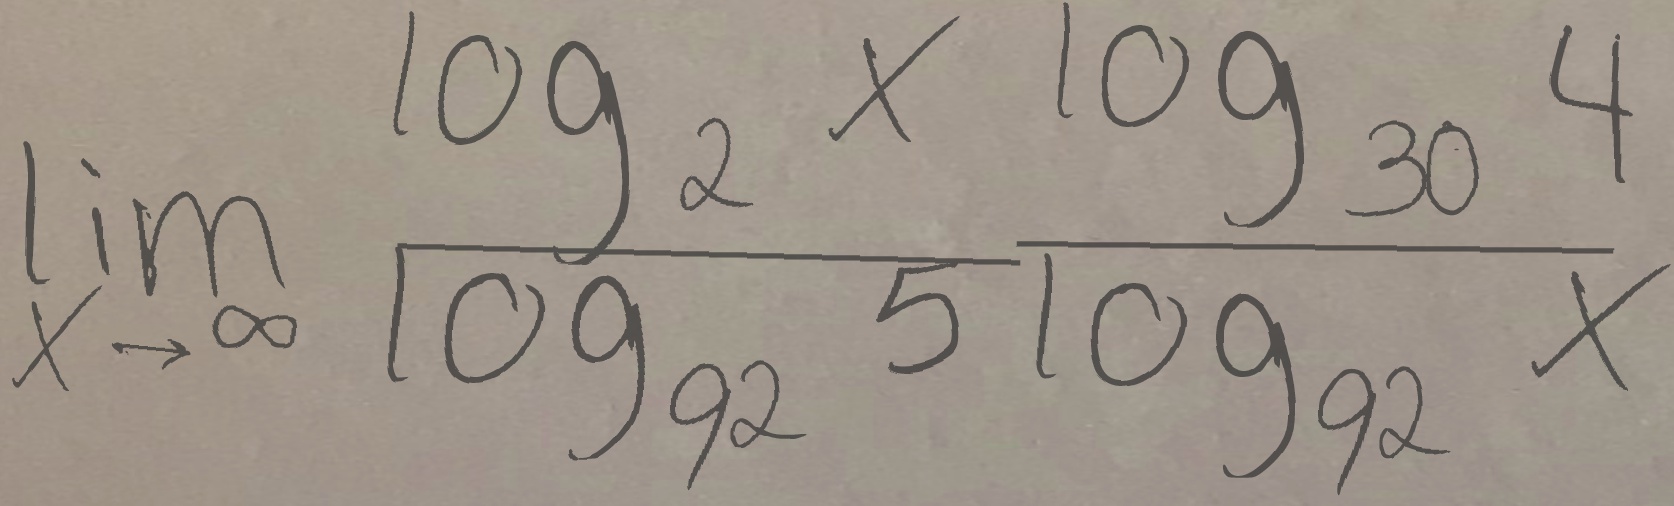 \lim_{x \to \infty} \frac{\log_{2} x}{\log_{92} 5} \frac{\log_{30} 4}{\log_{92} x}